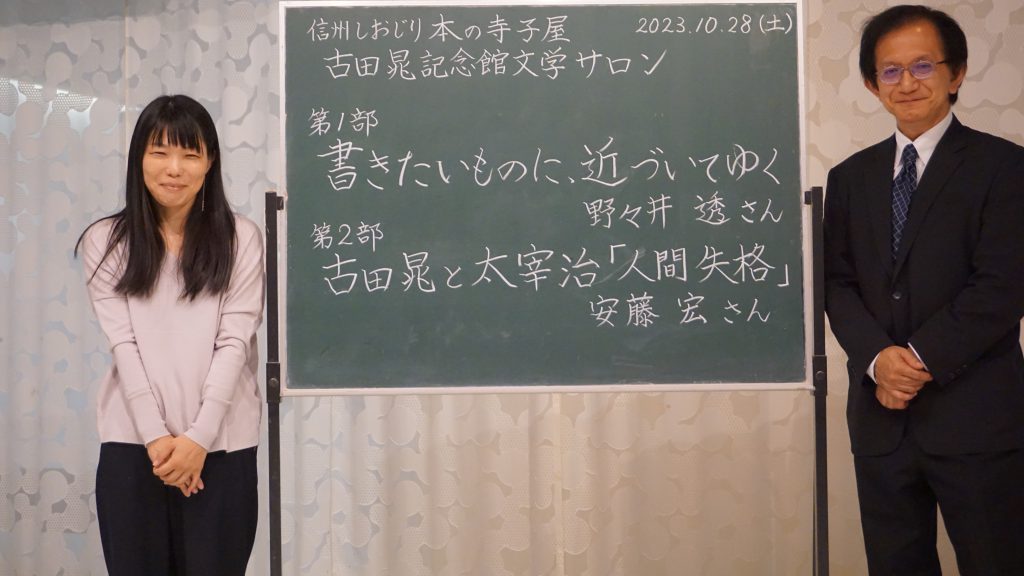 信州しおじり本の寺子屋 2023.10.28(土)
古田晁記念館文学サロン
第1部
書きたいものに、近づいてゆく
野々井 透さん
第2部
古田晁と太宰治「人間失格」
安藤 宏さん